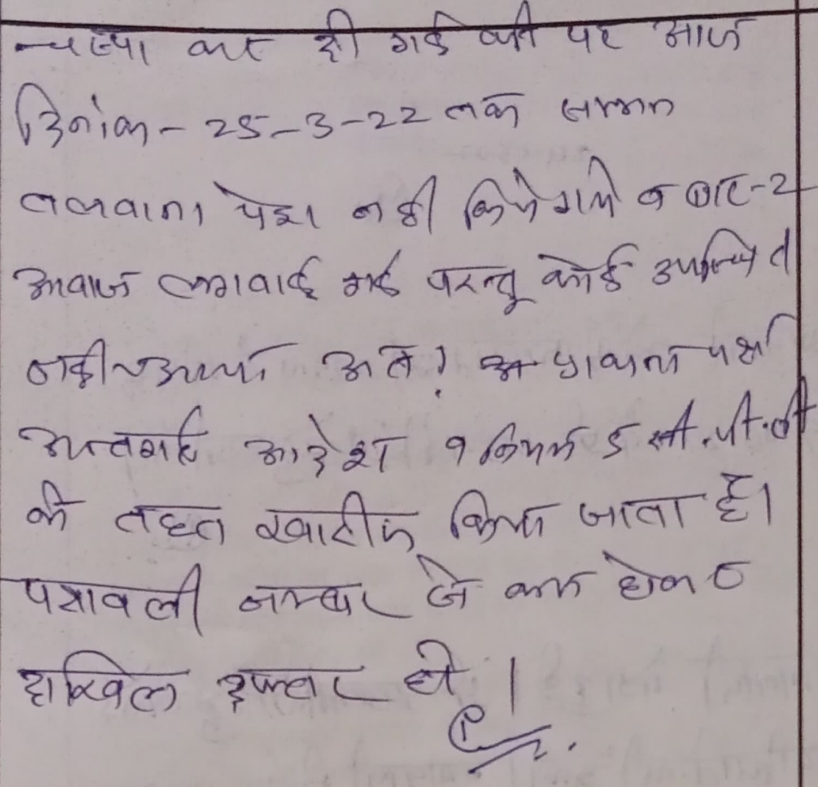 चस्पा कर दी गई थी पर आज
दिनांक - 25-3-22 तक सम्मन
तलवाना पेश नही किये गये व बार-2
आवाज लगवाई गई परन्तु कोई उपस्थित
नही आया अतः प्रार्थना पत्र
अन्तर्गत आदेश 9 नियम 5 सी.पी.सी
के तहत खारीज किया जाता है।
पत्रावली नम्बर से कम होकर
दाखिल दफ्तर हो।